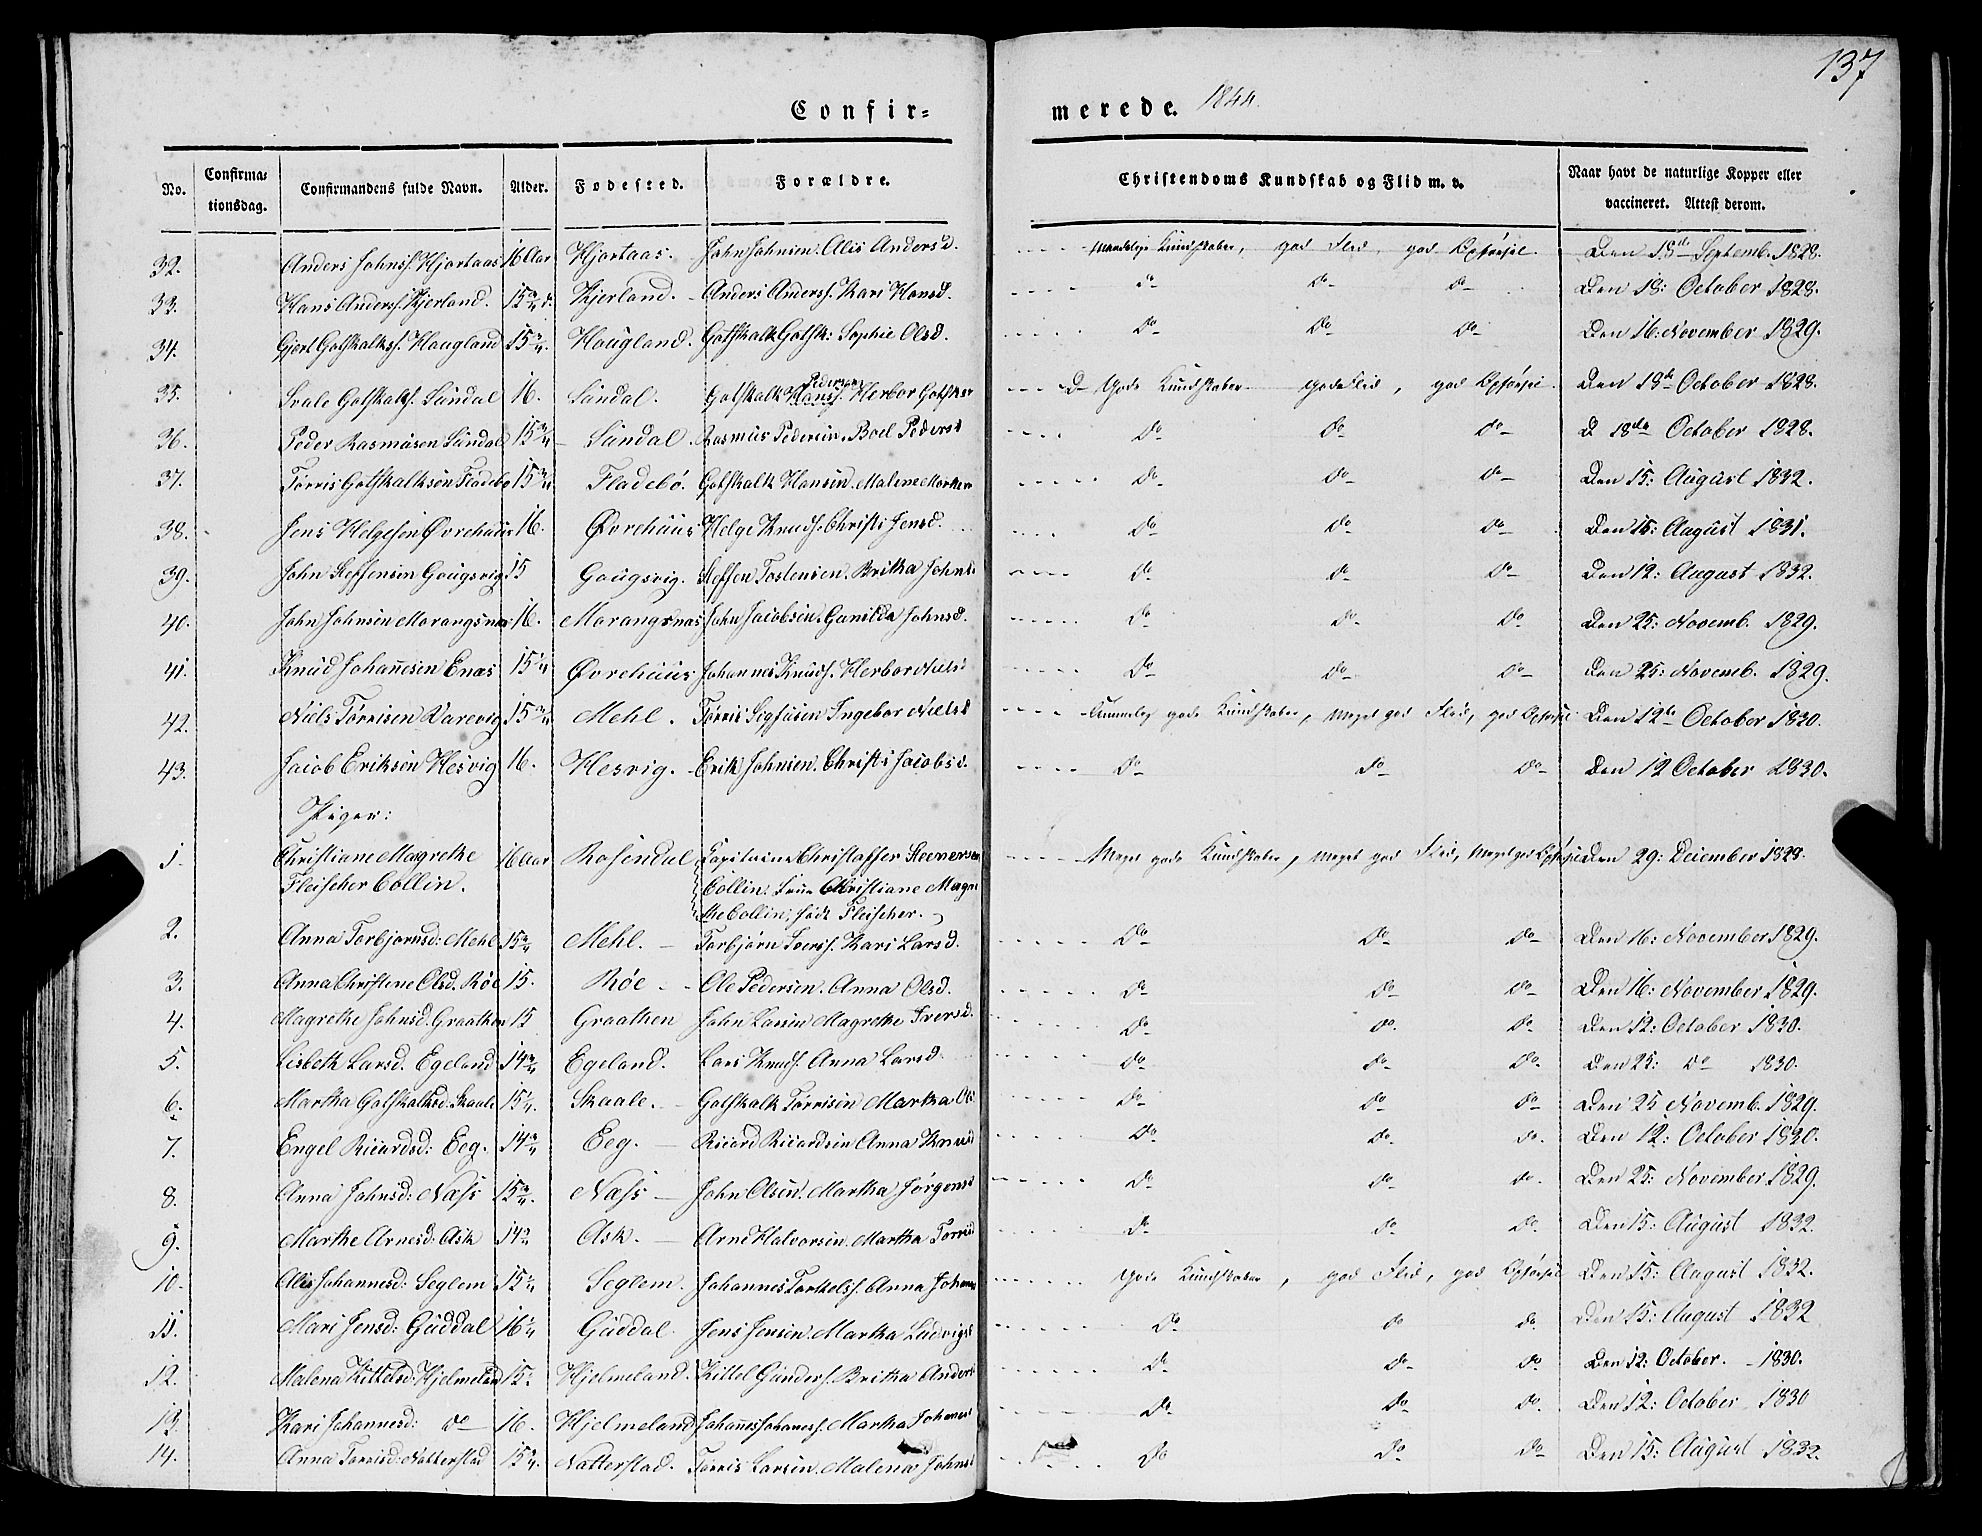 137
Confir= merede. 1844.
No. Confirma= tionsdag. Confirmandens fulde Navn. Alder. Fødested. Forældre. Christendoms Kundskab og Flid m. v. Naar havt de naturlige Kopper eller vaccineret. Attest derom.
32. Anders Johns. Hjortaas 16 Aar Hjortaas. John Johnsen. Alis Andersd. Kundskaber, god Flid, god Opførsel. Den 18de Septemb. 1828.
33. Hans Anders. Kjerland. 15 3/4 Kjerland. Anders Anders. Kari Hansd. do do do Den 18: October 1828.
34. Gjert Gotskalks. Hougland 15 3/4 Hougland. Gotskalk Gotsk: Sophie Olsd. do do do Den 16: November 1829.
35. Gotskalks. Sundal 16. Sundal. Gotskalk Pedersen Herbor Gotsk Gode Kundskaber god Flid, god Opførsel Den 18de October 1828.
36. Peder Rasmusen Sundal 15 3/4 Sundal. Rasmus Pedersen. Boel Pedersd do do do D 18de October 1828.
37. Tørris Gotskalksen Fladebø 15 3/4 Fladebø. Gotskalk Hansen. Malene do do do Den 15: August 1832.
38. Jens Helgesen Øvrehuus 16. Øvrehuus Helge Knuds. Christi Jensd. do do do Den 15: August 1831.
39. John Steffensen Gougsvig 15 Gougsvig. Steffen Tostensen. Britha Johns. do do do Den 12: August 1832.
40. John Johnsen Morangsnæs 16. Morangsnæs John Jacobsen. Gunilda Johnsd. do do do Den 25: Novemb. 1829.
41. Knud Johannesen Enæs 15 1/4 Øvrehuus Johannes Knuds. Herbor Nielsd do do do Den 25: Novemb. 1829.
42. Niels Tørrisen Varevig 15 3/4 Mehl. Tørris Sigfusen Ingebor Nielsd Temmelig gode Kundskaber, Meget god Flid, god Opførsel Den 12te October 1830.
43. Jacob Eriksen Hesvig 16. Hesvig. Erik Johnsen. Christi Jacobsd. do do do Den 12 October 1830.
Piger:
1. Christiane Magrethe 16 Aar Rosendal Kapitaine Christaffer Steenersen Meget gode Kundskaber, Meget god Flid, Meget god Opførsel Den 29: December 1828.
Fleischer Collin. Collin. Christiane Magre
the Collin, født Fleischer.
2. Anna Torbjørnsd: Mehl 15 3/4 Mehl. Torbjørn Ivers. Kari Larsd. do do do Den 16: November 1829.
3. Anna Christine Olsd. Røe 15. Røe. Ole Pedersen. Anna Olsd. do do do Den 16: November 1829.
4. Magrethe Johnsd. Graathen 15 Graathen John Larsen Magrethe Iversd. do do do Den 12: October 1830.
5. Lisbeth Larsd. Egeland 14 3/4 Egeland. Lars Knuds. Anna Larsd. do do do Den 25: do 1830.
6. Martha Gotskalksd: Skaale 15 1/4. Skaale. Gotskalk Tørrisen Martha Ol do do do Den 25 Novemb. 1829.
7. Engel Ricardsd: Eeg. 14 3/4 Eeg. Ricard Ricardsen Anna Knud do do do. Den 12: October 1830.
8. Anna Johnsd: Næss 15 3/4. Næss John Olsen. Martha Jørgens do do do. Den 25: November 1829.
9. Marthe Arnesd: Ask 14 3/4 Ask. Arne Halvorsen. Martha Torris do do do. Den 15: August 1832.
10. Alis Johannesd: Seglem 15 1/4 Seglem. Johannes Torkels. Anna Johan Gode Kundskaber, god Flid, god Opførsel Den 15: August 1832.
11. Mari Jensd: Guddal 16 1/4 Guddal. Jens Jensen. Martha Ludvigs do do do. Den 15: August 1832
12. Malena Kittelsd: Hjelmeland 15 Hjelmeland. Kittel Gunders. Britha Anders do do do Den 12: October. 1830.
13. Kari Johannesd: do 16. Hjelmeland Johannes Johannes. Martha Johannes do do do. Den 12: October 1830
14. Anna Torrisd: Natterstad 15 3/4. Natterstad. Torris Larsen. Malena Johns do do do Den 15: August 1832.